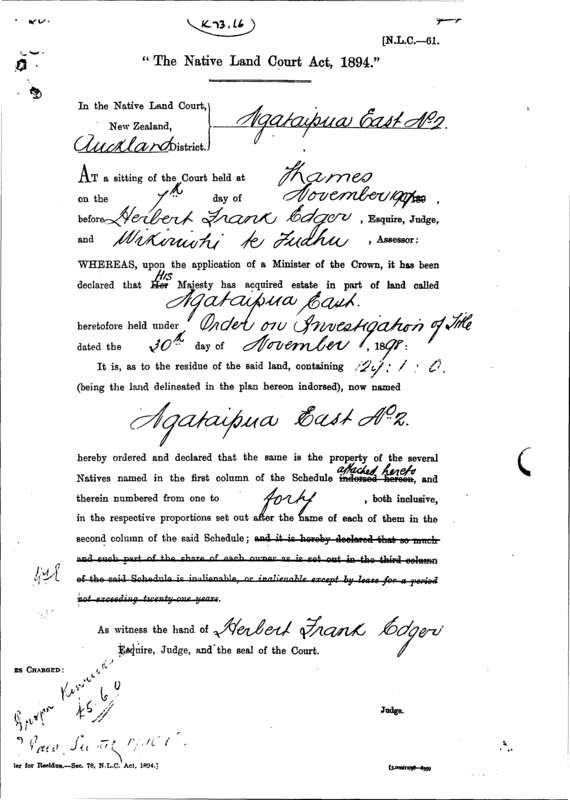 K 73.16
[N.L.C.—61.
"The Native Land Court Act, 1894."
In the Native Land Court,
New Zealand,
Auckland District.
Ngataipua East No 2.
AT a sitting of the Court held at Thames
on the 7th day of November
before Herbert Frank Edger, Esquire, Judge,
and te , Assessor:
WHEREAS, upon the application of a Minister of the Crown, it has been
His
declared that Her Majesty has acquired estate in part of land called
Ngataipua East.
heretofore held under Order on Investigation of Title
dated the 30th day of November, 1898:
It is, as to the residue of the said land, containing : 1 : 0.
(being the land delineated in the plan hereon indorsed), now named
Ngataipua East No 2.
hereby ordered and declared that the same is the property of the several
attached hereto
Natives named in the first column of the Schedule indorsed hereon, and
therein numbered from one to forty, both inclusive,
in the respective proportions set out after the name of each of them in the
second column of the said Schedule; and it is hereby declared that so much
and such part of the share of each owner as is set out in the third column
of the said Schedule is inalienable, or inalienable except by lease for a period
not exceeding twenty-one years.
As witness the hand of Herbert Frank Edger
Esquire, Judge, and the seal of the Court.
ES CHARGED:
Judge.
ler for Residue.—Sec. 78, N.L.C. Act, 1894.]